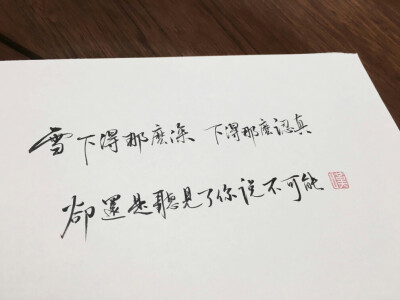 雪下得那麼深 下得那麼認真
卻還是聽見了你说不可能